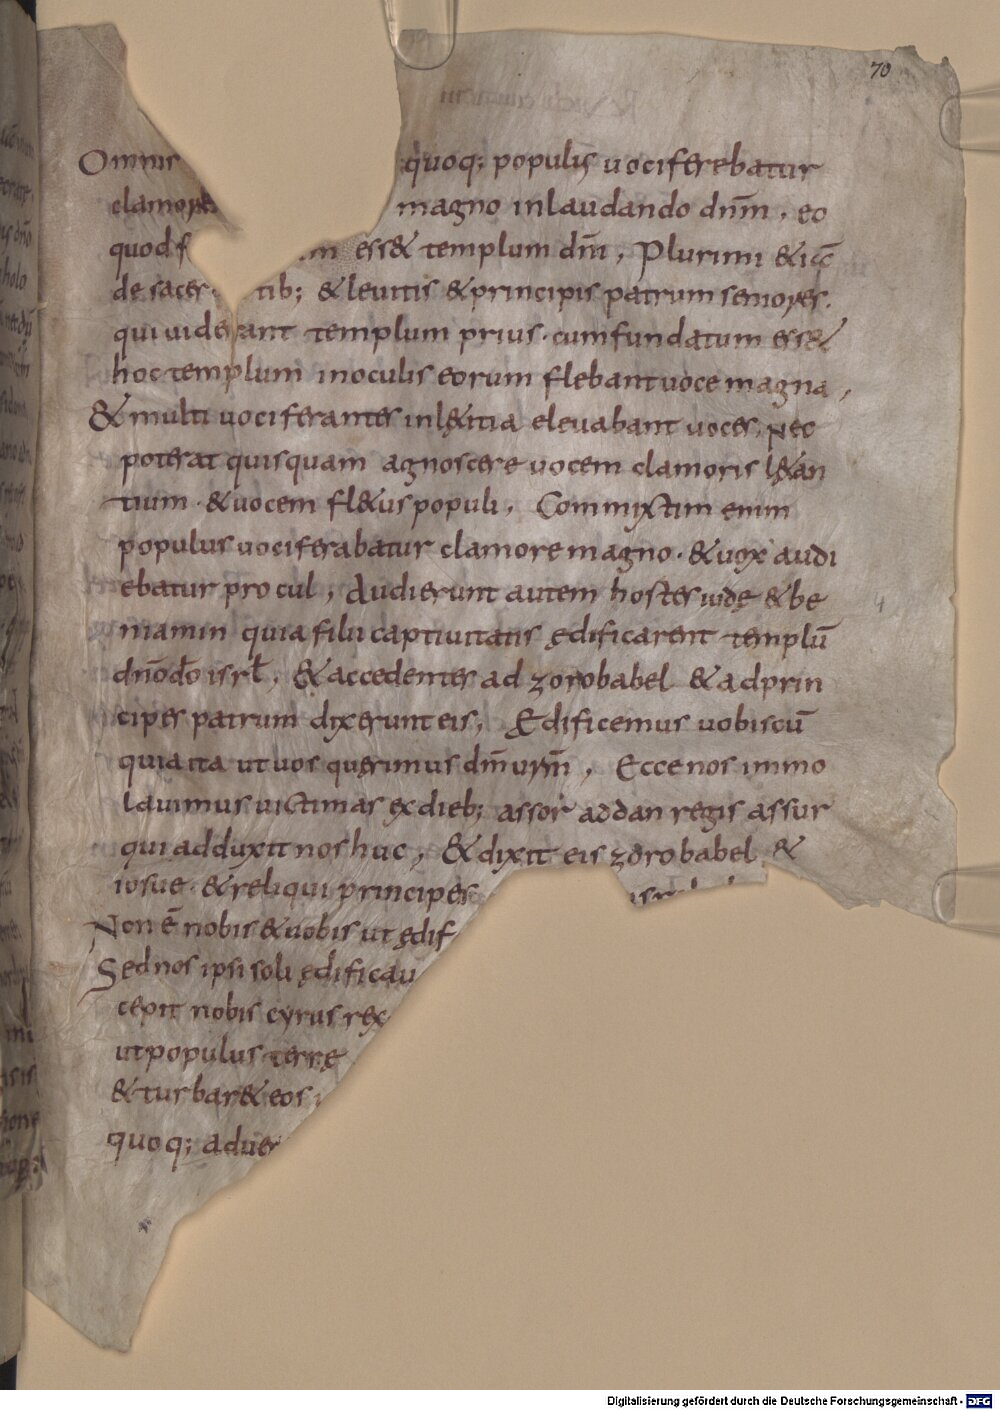 70
Omnis quoq; populus uociferebatur
clamore magno inlaudando dnm̄, eo
quod f esset templum dnī, Plurimi &iā
de sacer tib; & leuitis & principis patrum seniores.
qui uiderant templum prius. cum fundatum esset
hoc templum inoculis eorum flebant uoce magna,
& multi uociferantes inlætitia eleuabant uoces, Nec
poterat quisquam agnoscere uocem clamoris l&an
tium. & uocem fl&us populi, Commixtim enim
populus uociferabatur clamore magno. & uox audi
ebatur procul, Audierunt autem hostes iudę & be
niamin quia filii captiuitatis ędificarent templū
dnō dō isrl, & accedentes ad zorobabel & ad prin
cipes patrum dixerunt eis, Edificemus uobiscū
quia ita ut uos querimus dm̄ urm̄, Ecce nos immo
lauimus uictimas ex dieb; assor addan regis assur
qui adduxit nos huc, & dixit eis zorobabel &
iosue. & reliqui principes
Non ē nobis & uobis ut ędif
Sed nos ipsi soli ędificau
cepit nobis cyrus rex
ut populus terrę
& turbar& eos
quoq; aduer
Digitalisierung gefördert durch die Deutsche Forschungsgemeinschaft - DFG